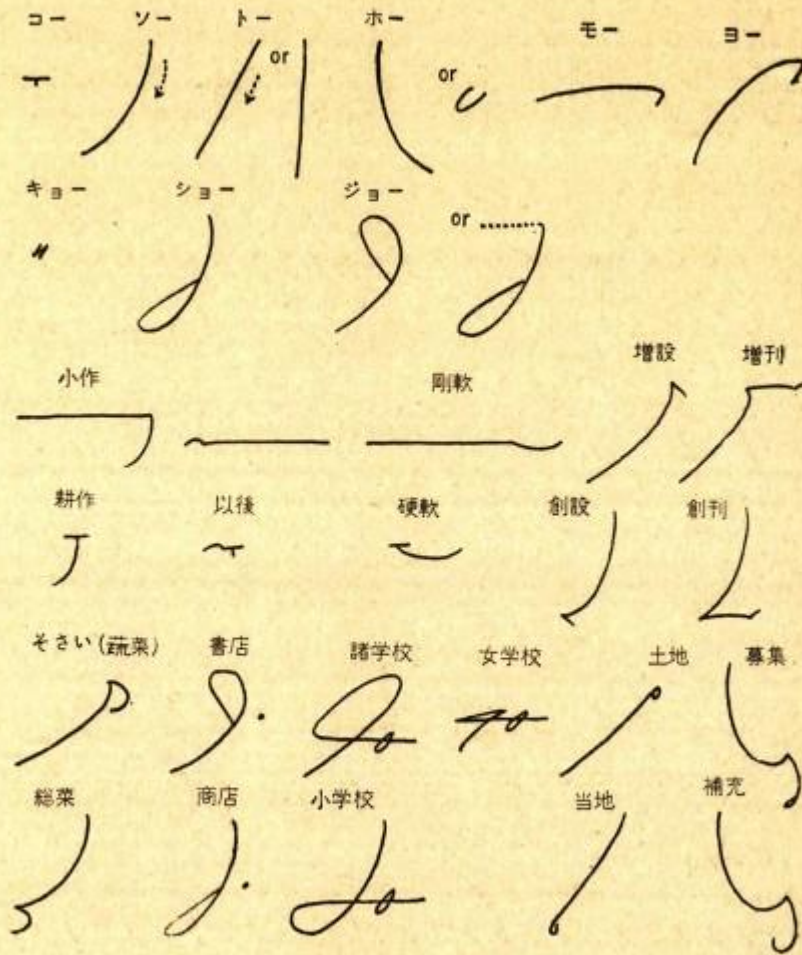 コー ソー トー or ホー or モー ヨー
キョー ショー ジョー or
小作 剛軟 増設 増刊
耕作 以後 硬軟 創設 創刊
そさい(蔬菜) 書店 諸学校 女学校 土地 募集
総菜 商店 小学校 当地 補充